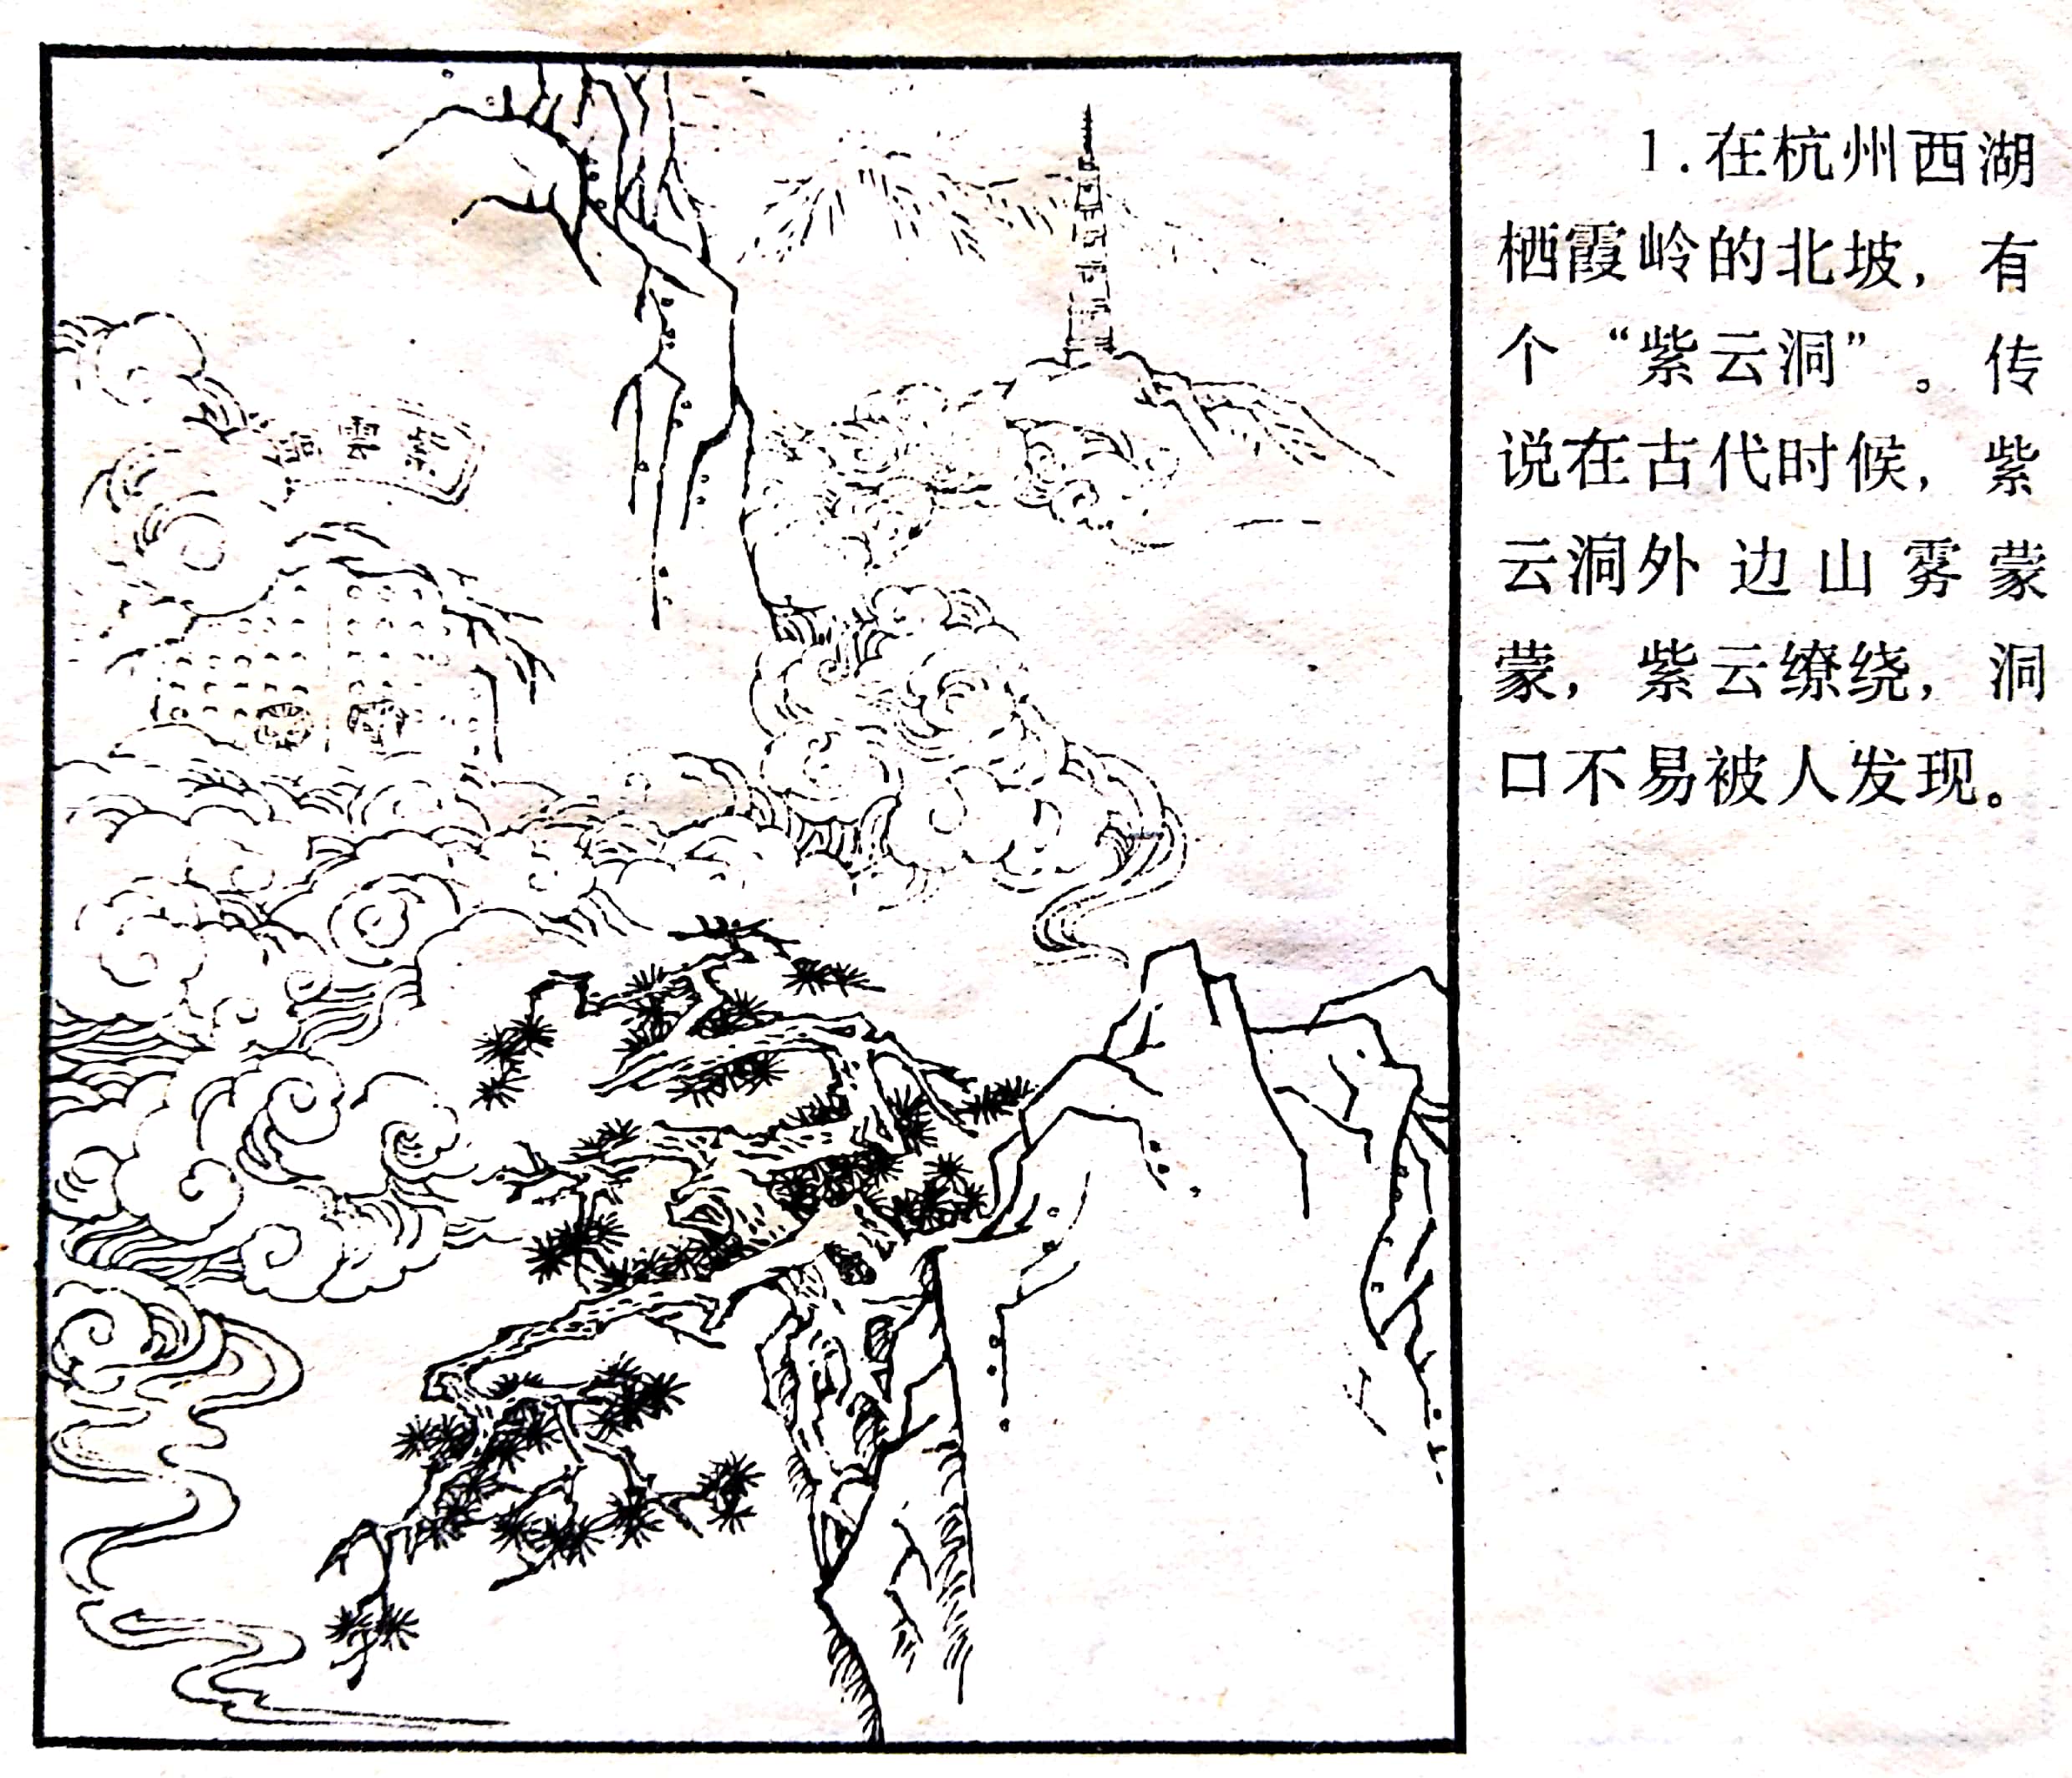 洞雲紫
1.在杭州西湖
栖霞岭的北坡，有
个“紫云洞”。传
说在古代时候，紫
云洞外边山雾蒙
蒙，紫云缭绕，洞
口不易被人发现。